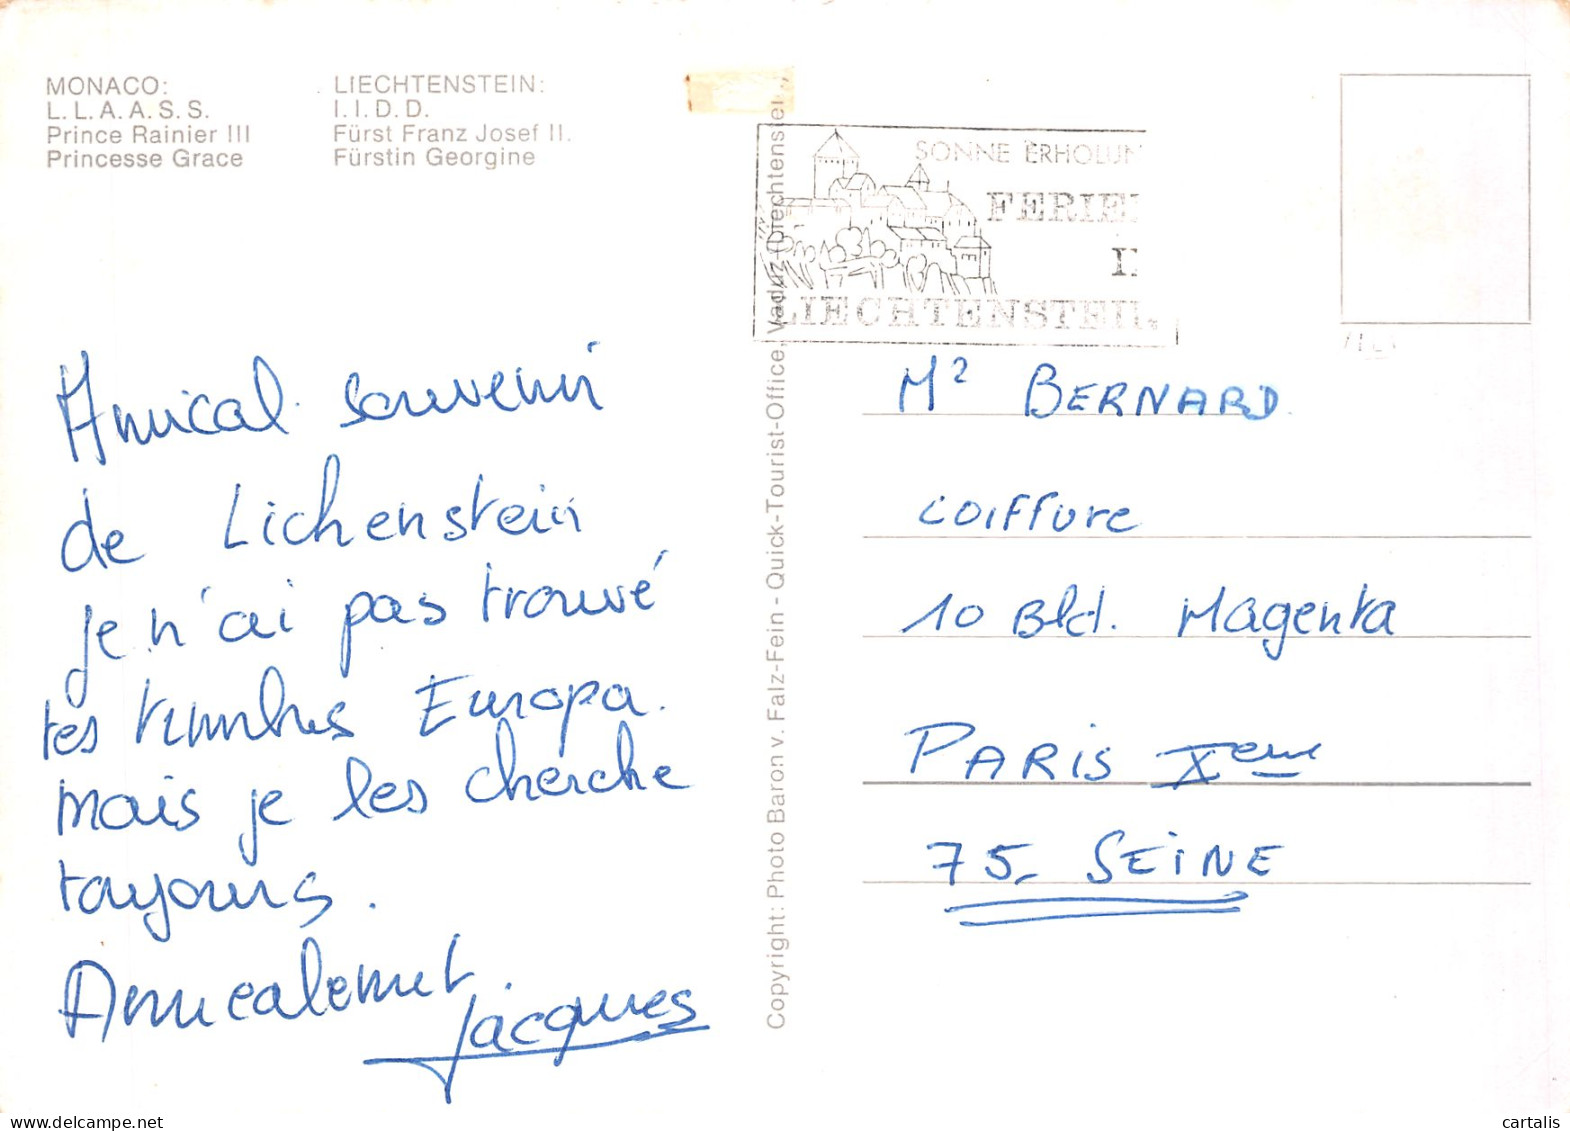 MONACO:
L.L.A.A.S.S.
Prince Rainier III
Princesse Grace
LIECHTENSTEIN:
I.I.D.D.
Fürst Franz Josef II.
Fürstin Georgine
SONNE ERHOLUN
FERIE
I
LIECHTENSTEI
Amical souvenir
de Lichenstein
je n'ai pas trouvé
tes timbres Europa.
mais je les cherche
toujours.
Amicalement
Jacques
Copyright: Photo Baron v. Falz-Fein - Quick-Tourist-Office, Vaduz
Mr BERNARD
COIFFURE
10 Bld. Magenta
PARIS Xeme
75_ SEINE
cartalis